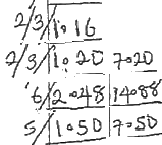 2/3/ 1.16
2/3/ 1.20 7.20
6/ 2.48 14.88
5/ 1.50 7.50